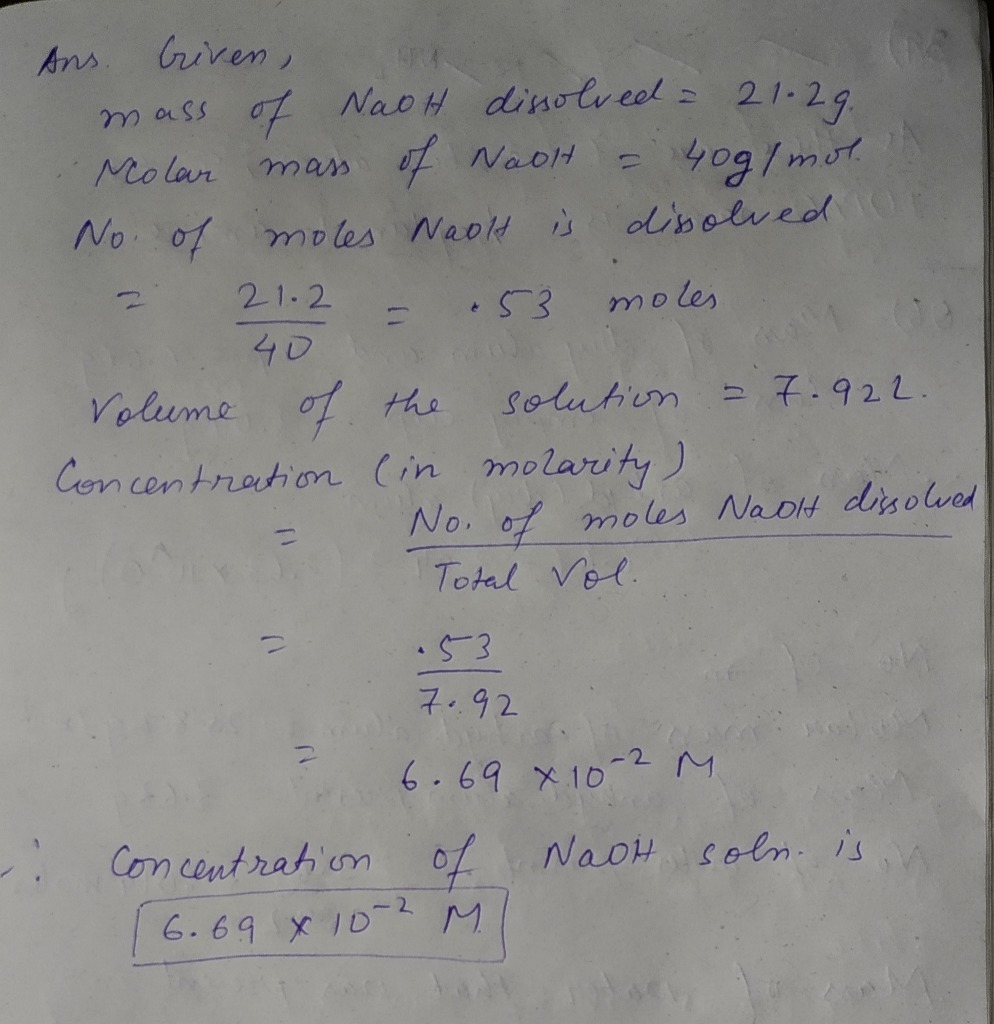 Ans. Given,
mass of NaOH dissolved = 21.2g.
Molar mass of NaOH = 40g/mol.
No. of moles NaOH is dissolved
= 21.2/40 = .53 moles
Volume of the solution = 7.92L.
Concentration (in molarity)
= No. of moles NaOH dissolved
Total Vol.
= .53
7.92
= 6.69 × 10⁻² M
∴ Concentration of NaOH soln. is
6.69 × 10⁻² M.